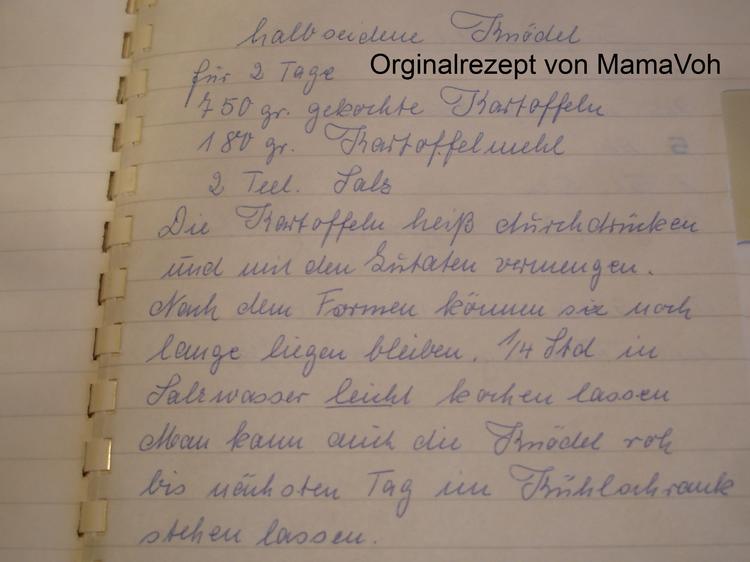 halbseidene Knödel
für 2 Tage
Orginalrezept von MamaVoh
750 gr. gekochte Kartoffeln
180 gr. Kartoffelmehl
2 Teel. Salz
Die Kartoffeln heiß durchdrücken
und mit den Zutaten vermengen.
Nach dem Formen können sie noch
lange liegen bleiben. 1/4 Std in
Salzwasser leicht kochen lassen
Man kann auch die Knödel roh
bis nächsten Tag im Kühlschrank
stehen lassen.